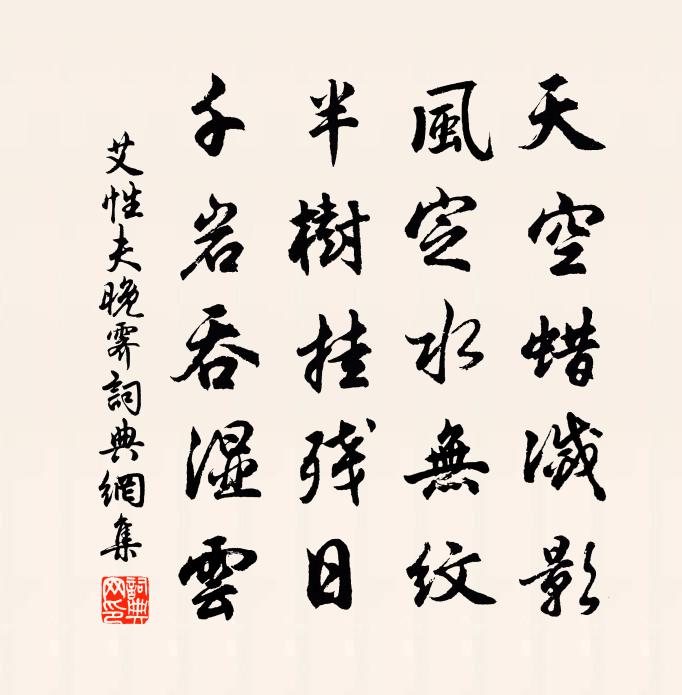 天空蜡滅影
風定水無紋
半樹挂残日
千岩吞湿雲
艾性夫晚霽詞典網集
詞典
网印